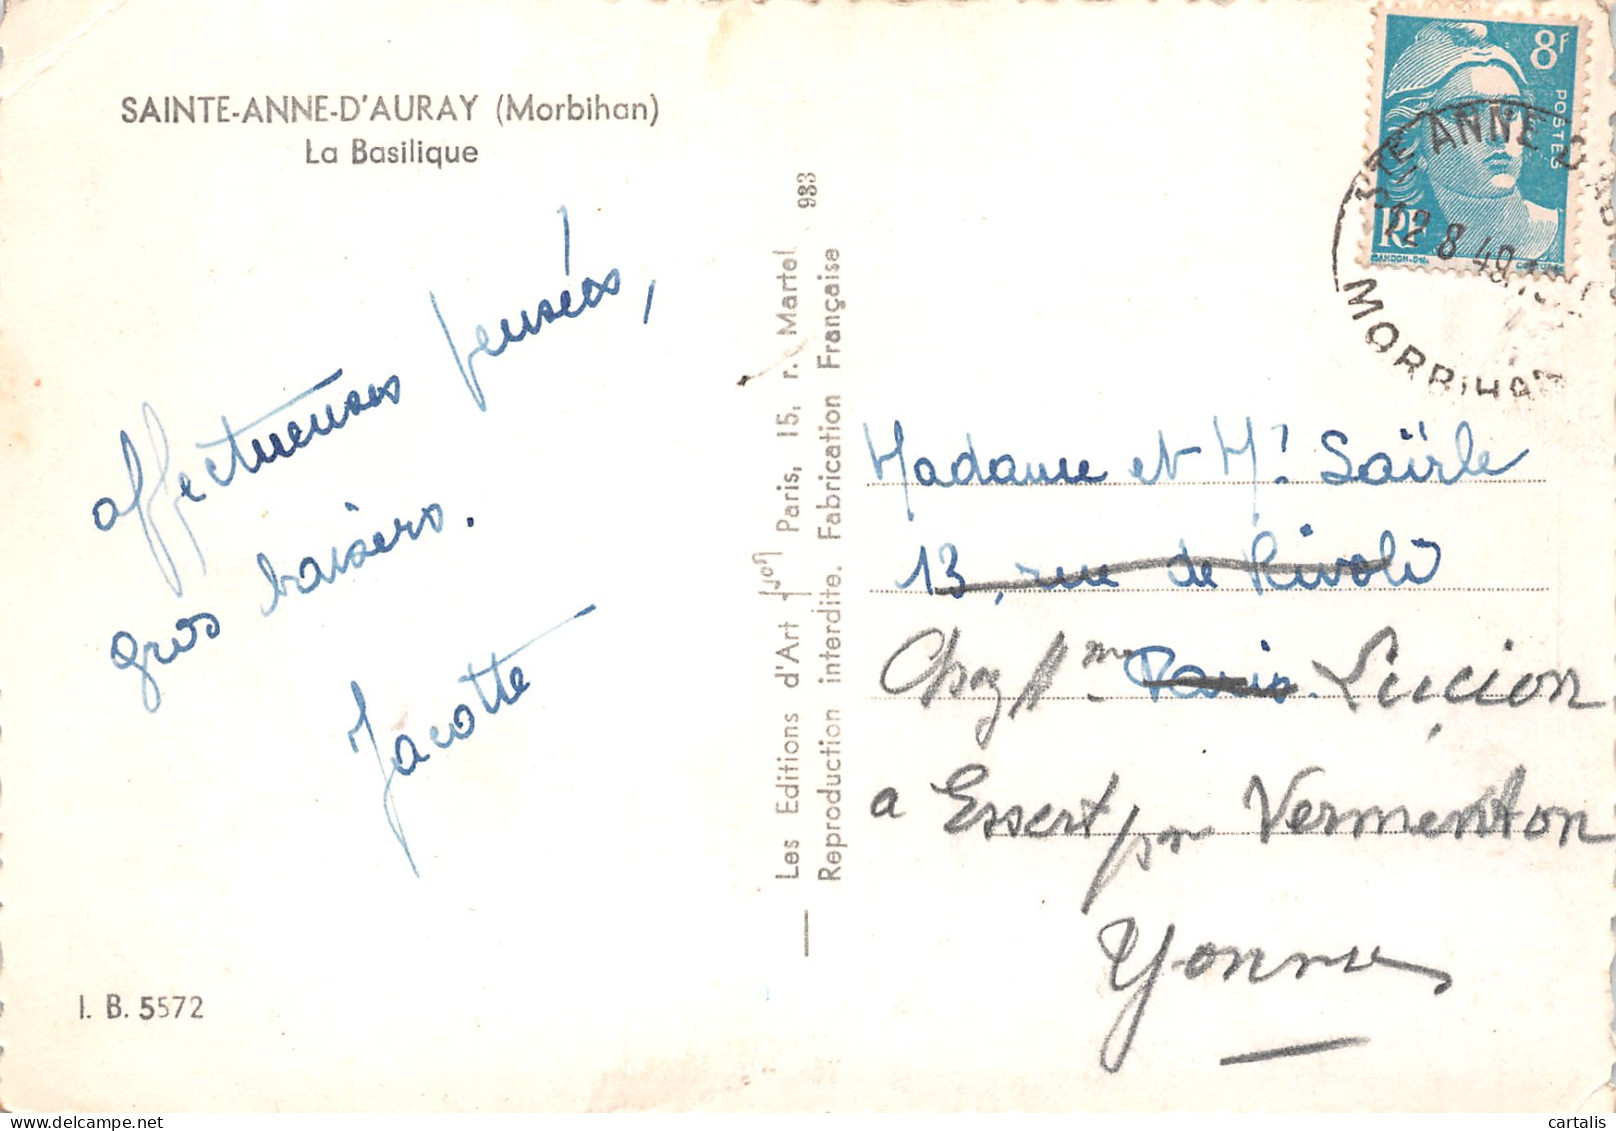 SAINTE-ANNE-D'AURAY (Morbihan)
La Basilique
affectueuses pensées,
gros baisers.
Jacotte
I. B. 5572
Les Editions d'Art Yvon Paris, 15, r. Martel 933
Reproduction interdite. Fabrication Française
8F
POSTES
RF
GANDON-Del.
STE ANNE D'AUR
12 8 49
MORBIHAN
Madame et Mr Saïrle
13, rue de Rivoli
Paris.
Chez Mme Lucion
a Essert par Vermenton
Yonne
cartalis
www.delcampe.net